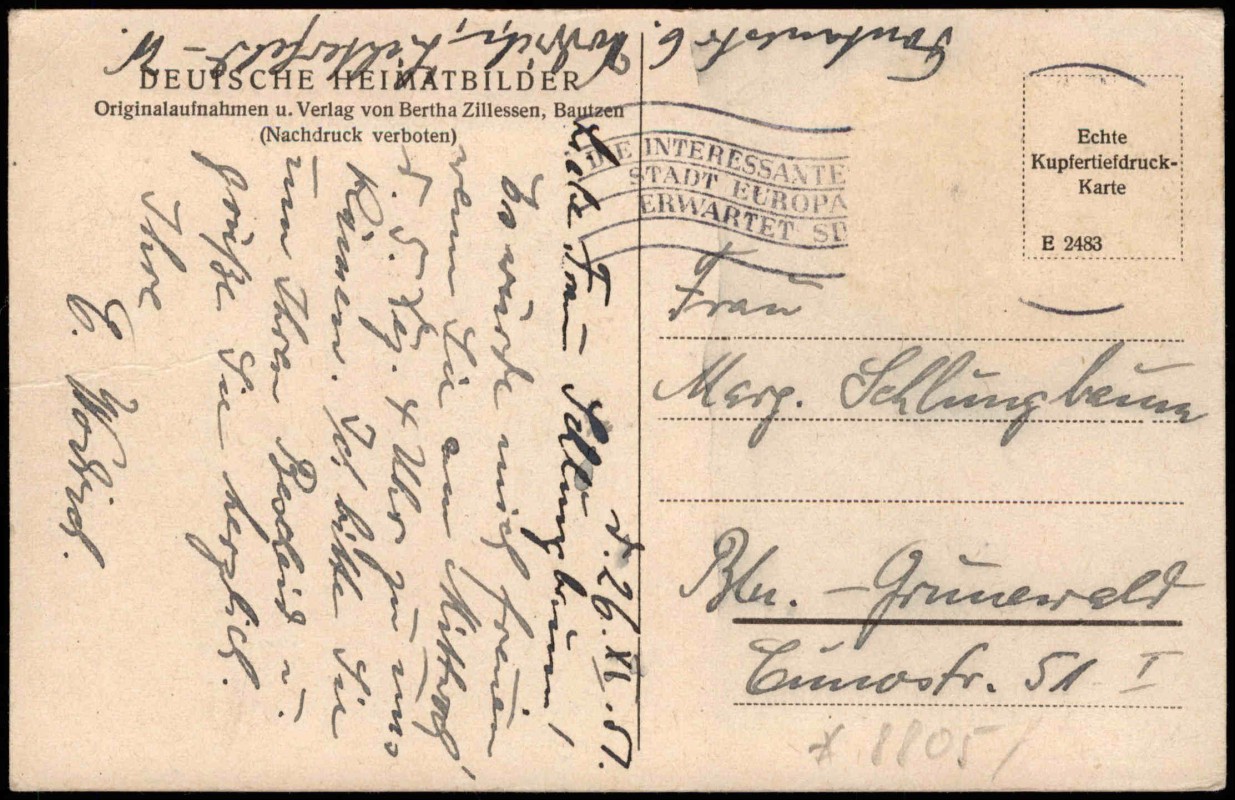 Wordrich, Lichterfelde-W.
Fontanestr 6.
DEUTSCHE HEIMATBILDER
Originalaufnahmen u. Verlag von Bertha Zillessen, Bautzen
(Nachdruck verboten)
DIE INTERESSANTE
STADT EUROPA
ERWARTET SI
Echte
Kupfertiefdruck-
Karte
E 2483
d. 26. XI. 51.
Liebe Frau Schlungbaum!
Es würde mich freuen
wenn Sie am Mittwoch
d. 5. Dez. 4 Uhr zu uns
kämen. Ich bitte Sie
um Ihren Bescheid u.
grüße Sie herzlich.
Ihre
E. Wordrich.
Frau
Marg. Schlungbaum
Bln. - Grunewald
Cunostr. 51 I
* 8805/